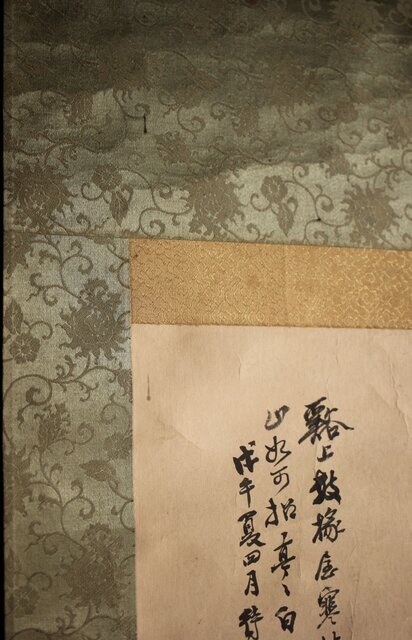 谿上數椽屋寒
山如可招亭〻白
戊午夏四月